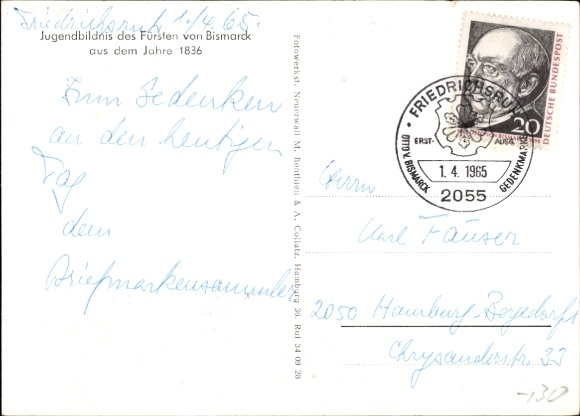 Friedrichsruh 1./4. 65.
Jugendbildnis des Fürsten von Bismarck
aus dem Jahre 1836
Zum Gedenken
an den heutigen
Tag
dem
Briefmarkensammler
Fotowerkst. Neuerwall M. Benthien & A. Collatz, Hamburg 36, Ruf 34 09 28
DEUTSCHE BUNDESPOST
20
• FRIEDRICHSRUH
ERST- AUSG.
OTTO V. BISMARCK GEDENKMARKE
1. 4. 1965
2055
Herrn
Karl Fäuser
2050 Hamburg-Bergedorf
Chrysanderstr. 33
-130